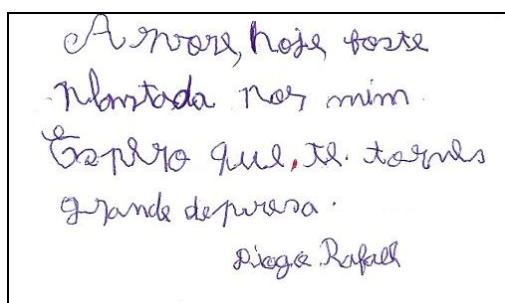 Arvore, hoje foste
plantada por mim.
Espero que, te tornes
grande depresa.
Diogo Rafael